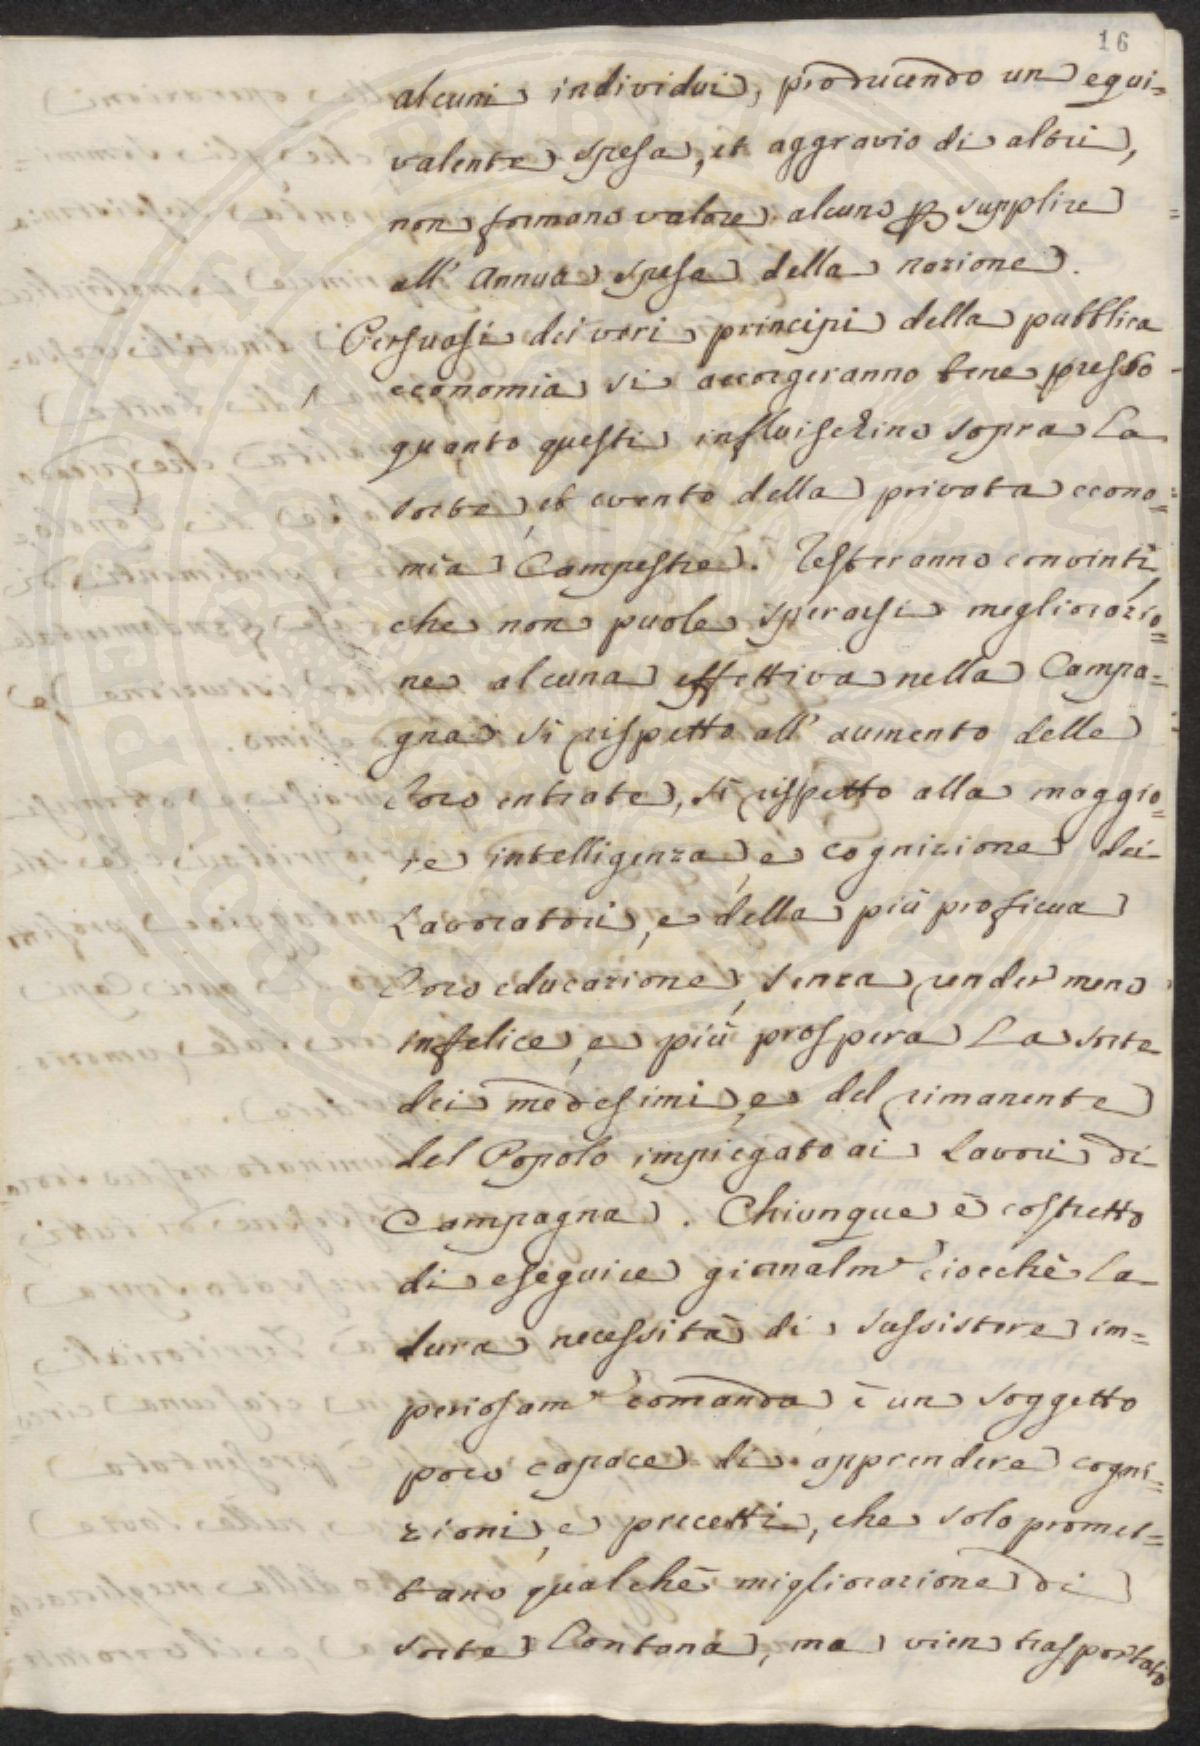 16
alcuni individui, producendo un equi=
valente spesa, et aggravio di altri,
non formano valore alcuno p supplire
all' Annua spesa della nazione.
Persuasi dei veri principi della pubblica
economia si accorgeranno bene presto
quanto questi influischino sopra la
sorte, et evento della privata econo=
mia Campestre. Resteranno convinti,
che non puole sperarsi megliorazio=
ne alcuna effettiva nella Campa=
gna si rispetto all' aumento delle
loro entrate, si rispetto alla maggio=
re intelligenza, e cognizione dei
Lavoratori, e della più proficua
loro educazione, senza render meno
infelice, e più prospera la sorte
dei medesimi, e del rimanente
del Popolo impiegato ai Lavori di
Campagna. Chiunque è costretto
di eseguire giornalm.e ciocchè la
dura necessità di sussistere im=
periosam.e comanda è un soggetto
poco capace di apprendere cogni=
zioni, e precetti, che solo promet=
tano qualche migliorazione di
sorte lontana, ma vien trasportato